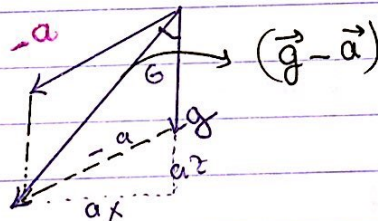 -a
(g⃗ - a⃗)
G
-a
g
az
ax